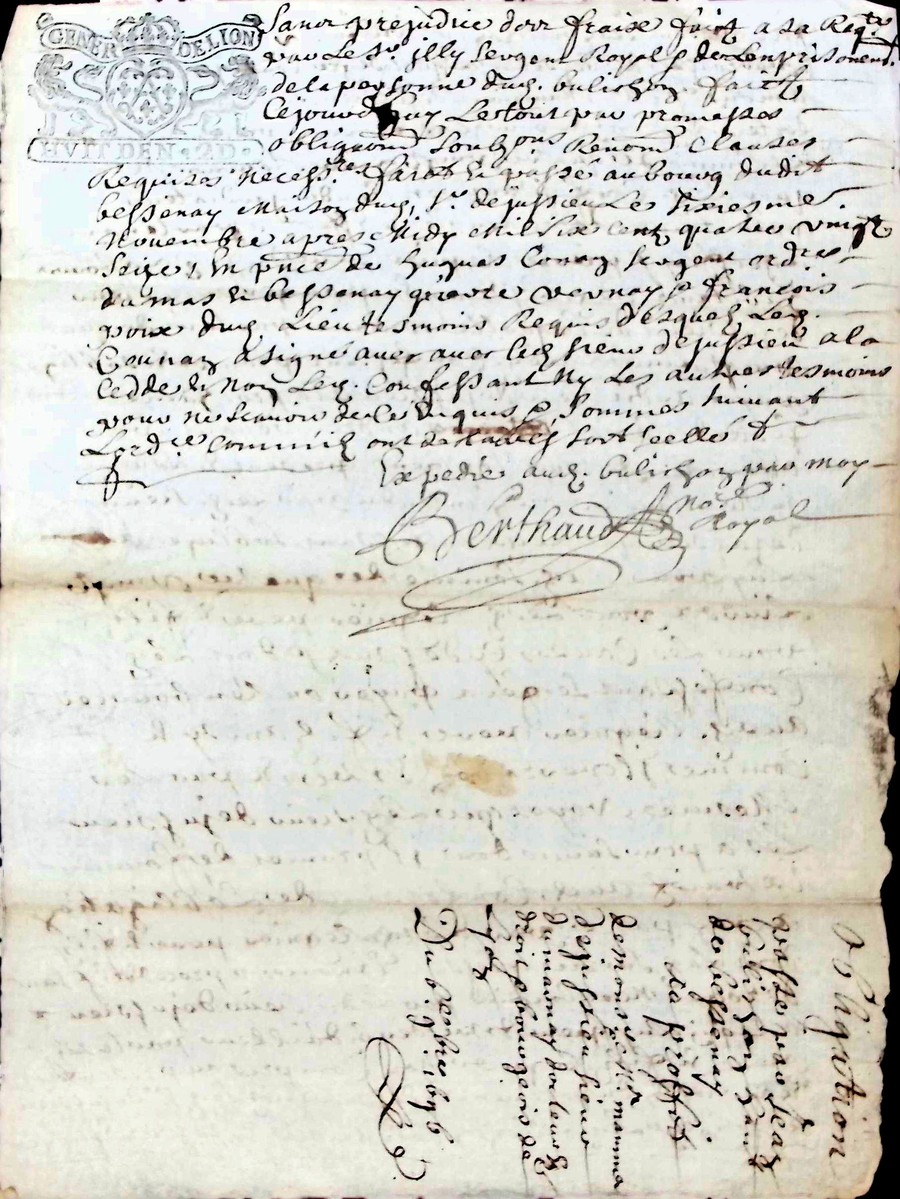 GENER DE LION
HVIT DEN · 2 D ·
Sanx prejudice dox fraix faict a sa Reqte
par Le Sr jlly sergent Royal & de Lenprisonemt
de la personne dud. bulichon faict
Cejourdhuy Le tout par promesses
obligeons soubzons Renons Clauses
Requises necessres faict & passé au bourg dudit
bessenay Maison dud. Sr dejussieu Le sixiesme
Novembre apres Midy Mil six cent quatre vingt
seize, En pnce de huguas Conaz sergent ordre
damas & bessenay pierre vernay & françois
poix dud. Lieu tesmoins Requis desquelz Led.
Counaz a signé avec avec led. sieur dejussieu a la
cedde & non Led. Confessant Ny Les autres tesmoins
pour ne scavoir de ce Enquis & Sommes suivant
Lordce Commrée ont declairés soit seellé
Expedié aud. bulichon par moy
Berthaud no. Royal
obligation
passée par Jean
bulichon
de bessenay
Au proffit
de monsieur
dejussieu sieur
dumaunay docteur &
droit & bourgeois de
Lyon
Du 6. 9embre 1696